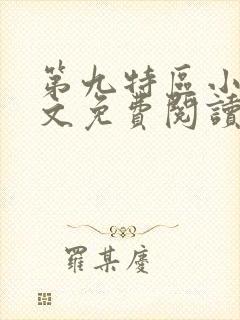 第九特區小
文免費閱讀
羅某慶